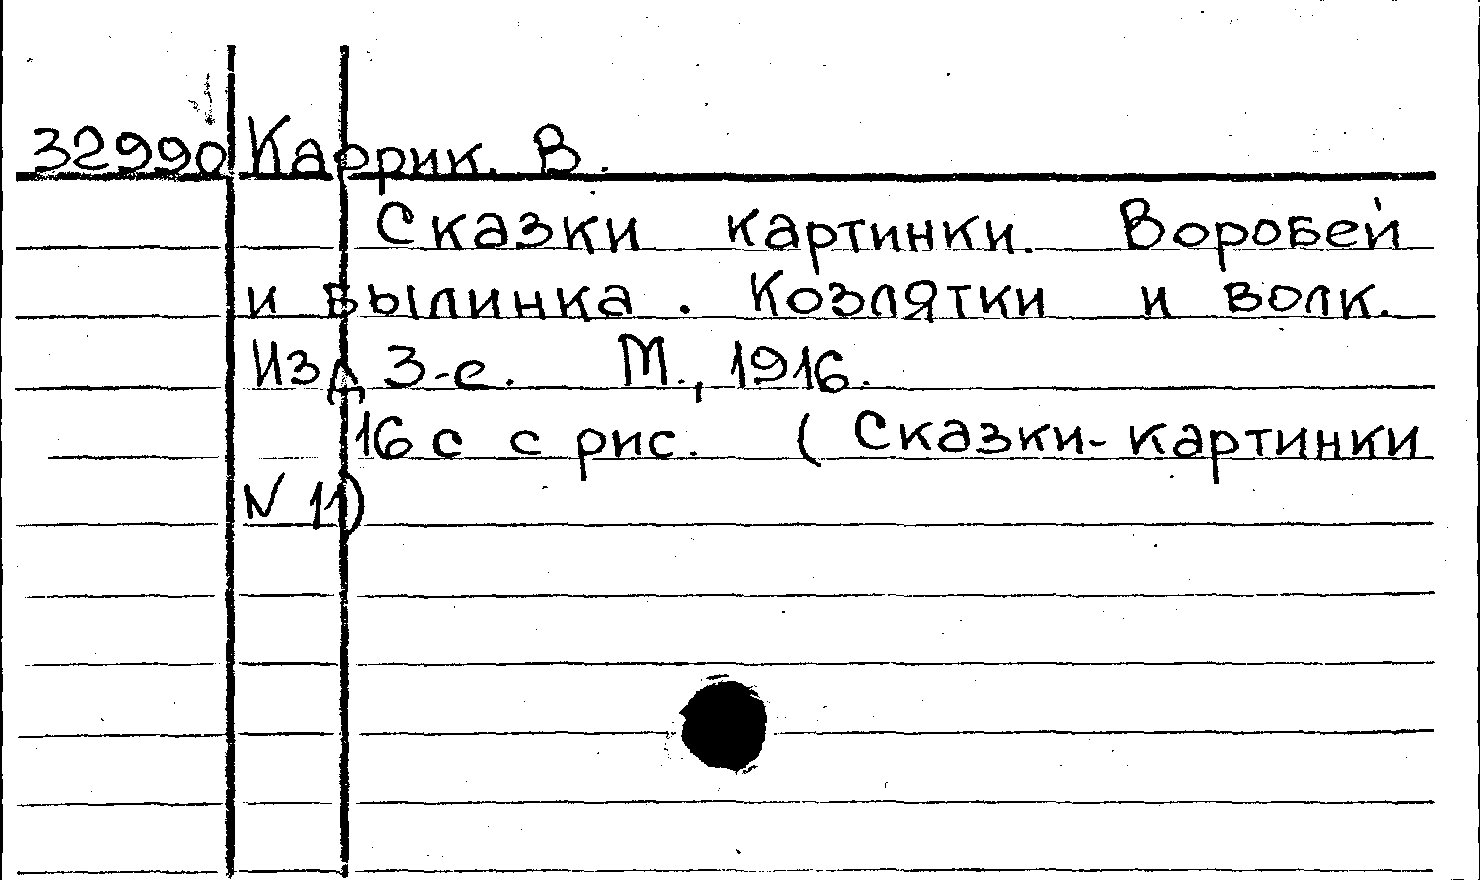 32990 Каррик. В.
Сказки картинки. Воробей
и былинка. Козлятки и волк.
Изд 3-е. М., 1916.
16 с с рис. (Сказки-картинки
N 11)